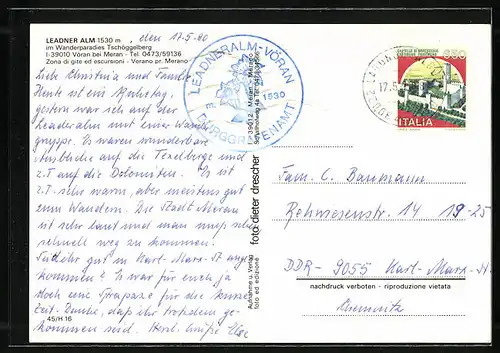 LEADNER ALM 1530 m
im Wanderparadies Tschögglberg
I-39010 Vöran bei Meran · Tel. 0473/59136
Zona di gite ed escursioni - Verano pr. Merano
, den 17.5.90
Liebe Christina und Familie
Heute ist ein Ruhetag,
gestern war ich auf der
Leadneralm mit einer Wander-
gruppe. Es waren wunderbare
Ausblicke auf die Texelberge und
z.T auf die Dolomiten. Es ist
z.T. sehr warm, aber meistens gut
zum Wandern. Die Stadt Meran
ist sehr laut und man muß sehr
schnell weg zu kommen.
Seid Ihr gut in Karl-Marx-St ange-
kommen? Es war für euch ja
doch eine Strapaze für die kurze
Zeit. Danke, daß ihr trotzdem ge-
kommen seid. Herzl. Grüße
45/H 16
LEADNERALM-VÖRAN
1530
BURGGRAFENAMT
I - 39012 Meran - Merano
foto dieter drescher
foto ed edizione
650
ITALIA
17.5.
Fam. C. Baumann
Rehwiesenstr. 14 19-25
DDR-9055 Karl-Marx-St.
nachdruck verboten - riproduzione vietata
Chemnitz